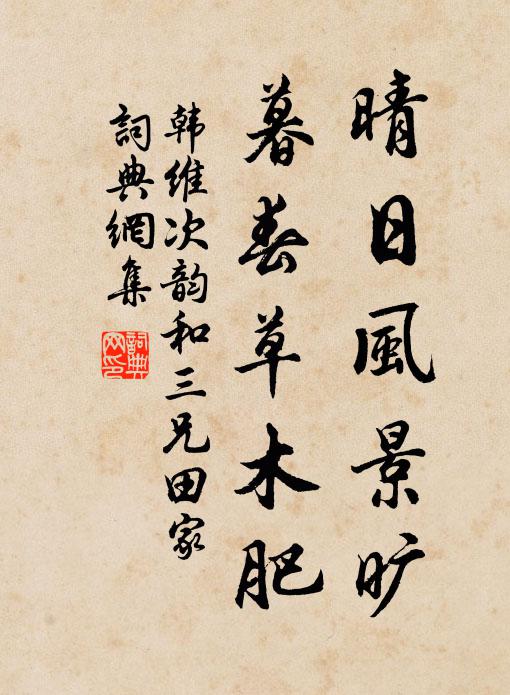 晴日風景旷
暮春草木肥
韩维次韵和三兄田家
詞典網集
詞典网印